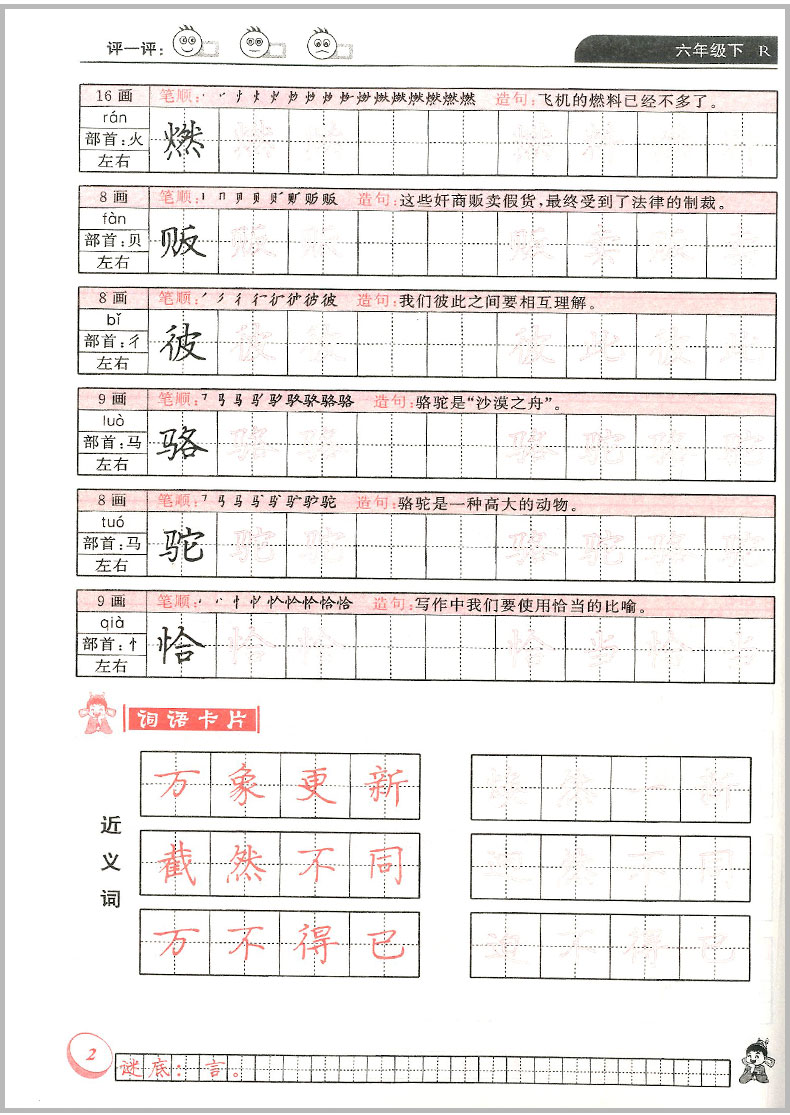 评一评：
六年级下 R
16画 笔顺： 造句：飞机的燃料已经不多了。
rán
部首：火
左右
燃 燃 燃 燃 料
8画 笔顺： 造句：这些奸商贩卖假货，最终受到了法律的制裁。
fàn
部首：贝
左右
贩 贩 贩 贩 卖
8画 笔顺： 造句：我们彼此之间要相互理解。
bǐ
部首：彳
左右
彼 彼 彼 彼 此 彼 此
9画 笔顺： 造句：骆驼是“沙漠之舟”。
luò
部首：马
左右
骆 骆 骆 骆 驼 骆 驼
8画 笔顺： 造句：骆驼是一种高大的动物。
tuó
部首：马
左右
驼 驼 驼 骆 驼 骆 驼
9画 笔顺： 造句：写作中我们要使用恰当的比喻。
qià
部首：忄
左右
恰 恰 恰 恰 当 恰 当
词语卡片
近义词
万象更新 焕然一新
截然不同 迥然不同
万不得已 迫不得已
2
谜底：言。